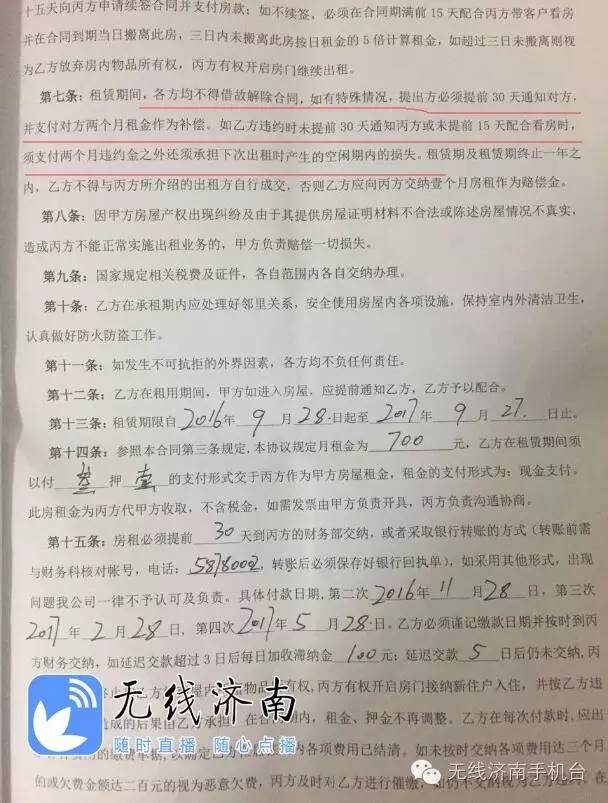 十五天向丙方申请续签合同并支付房款；如不续签，必须在合同期满前15天配合丙方带客户看房
并在合同到期当日搬离此房，三日内未搬离此房按日租金的5倍计算租金，如超过三日未搬离则视
为乙方放弃房内物品所有权，丙方有权开启房门继续出租。
第七条：租赁期间，各方均不得借故解除合同，如有特殊情况，提出方必须提前30天通知对方，
并支付对方两个月租金作为补偿。如乙方违约时未提前30天通知丙方或未提前15天配合看房时，
须支付两个月违约金之外还须承担下次出租时产生的空闲期内的损失。租赁期及租赁期终止一年之
内，乙方不得与丙方所介绍的出租方自行成交，否则乙方应向丙方交纳壹个月房租作为赔偿金。
第八条：因甲方房屋产权出现纠纷及由于其提供房屋证明材料不合法或陈述房屋情况不真实，
造成丙方不能正常实施出租业务的，甲方负责赔偿一切损失。
第九条：国家规定相关税费及证件，各自范围内各自交纳办理。
第十条：乙方在承租期内应处理好邻里关系，安全使用房屋内各项设施，保持室内外清洁卫生，
认真做好防火防盗工作。
第十一条：如发生不可抗拒的外界因素，各方均不负任何责任。
第十二条：乙方在租用期间，甲方如进入房屋，应提前通知乙方，乙方予以配合。
第十三条：租赁期限自2016年9月28日起至2017年9月27日止。
第十四条：参照本合同第三条规定，本协议规定月租金为700元，乙方在租赁期间须
以付叁押壹的支付形式交于丙方作为甲方房屋租金，租金的支付形式为：现金支付。
此房租金为丙方代甲方收取，不含税金，如需发票由甲方负责开具，丙方负责沟通协商。
第十五条：房租必须提前30天到丙方的财务部交纳，或者采取银行转账的方式（转账前需
与财务科核对帐号，电话：5878002，转账后必须保存好银行回执单），如采用其他形式，出现
问题我公司一律不予认可及负责。具体付款日期，第二次2016年11月28日，第三次
2017年2月28日，第四次2017年5月28日。乙方必须谨记缴款日期并按时到丙
方财务交纳，如延迟交款超过3日后每日加收滞纳金100元；延迟交款5日后仍未交纳，丙
物品所有权，丙方有权开启房门接纳新住户入住，并按乙方违
造成的后果由乙方承担。在合同期内，租金、押金不再调整。乙方在每次付款时，应出
内各项费用已结清。如未按时交纳各项费用达三个月
的或欠费金额达二百元的视为恶意欠费，丙方及时对乙方进行催缴，如仍不交的视为乙方违约，在
无线济南
随时直播 随心点播
无线济南手机台